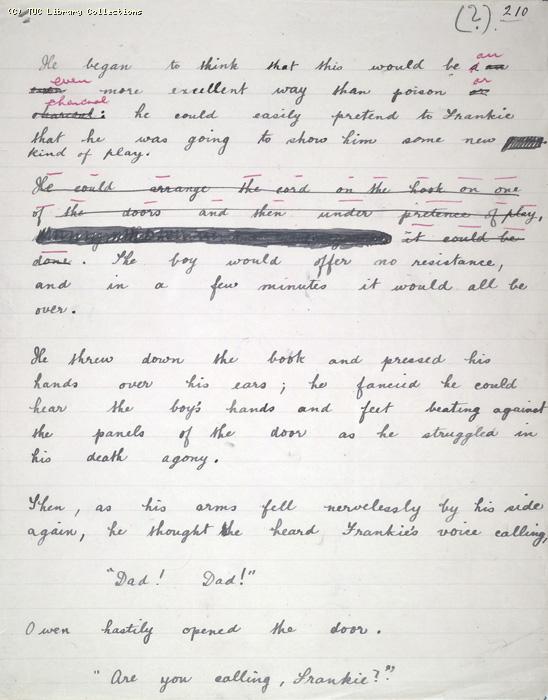 (C) TUC Library Collections
(?). 210
He began to think that this would be a an
even more excellent way than poison or
charcoal: he could easily pretend to Frankie
that he was going to show him some new
kind of play.
He could arrange the cord on the hook on one
of the doors and then under pretence of play,
it could be
done. The boy would offer no resistance,
and in a few minutes it would all be
over.
He threw down the book and pressed his
hands over his ears; he fancied he could
hear the boy's hands and feet beating against
the panels of the door as he struggled in
his death agony.
Then, as his arms fell nervelessly by his side
again, he thought he heard Frankie's voice calling,
"Dad! Dad!"
Owen hastily opened the door.
"Are you calling, Frankie?"